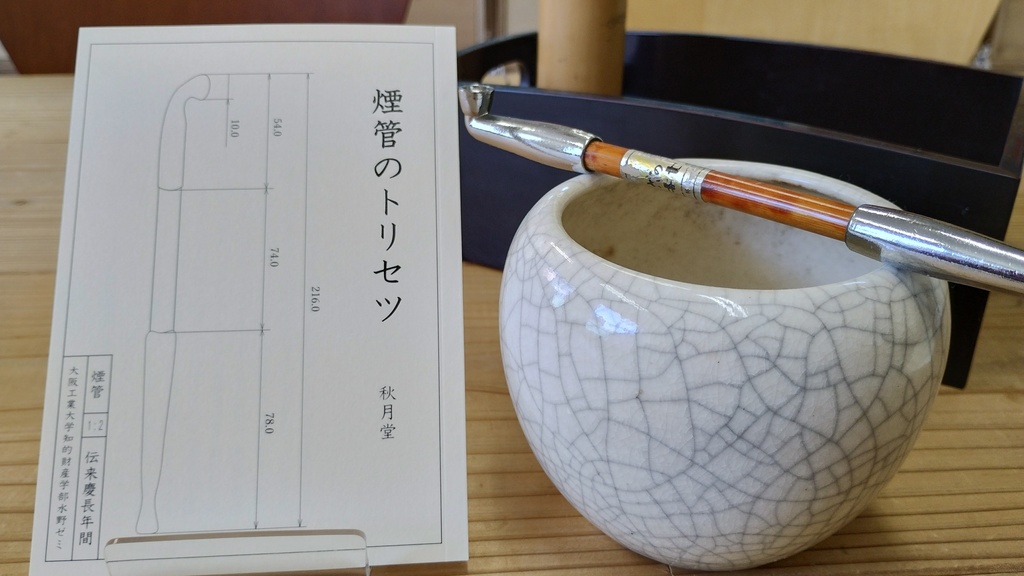 煙管のトリセツ
秋月堂
10.0
54.0
74.0
216.0
78.0
煙管
1:2
伝来慶長年間
大阪工業大学知的財産学部水野ゼミ